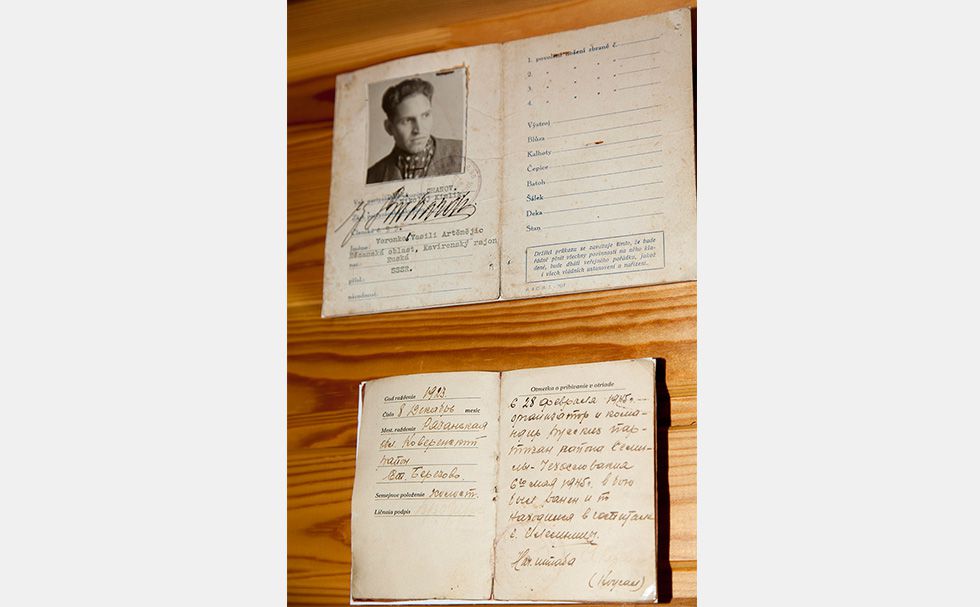 CHANOV.
Voronko Vasili Artěmějic
Rězanská oblast, Kavirenský rajon
Ruská
SSSR.
přísl.
národnost:
1. povolení nošení zbraně č.
2. " " "
3. " " "
4. " " "
Výstroj
Blůza
Kalhoty
Čepice
Batoh
Šálek
Deka
Stan
Držitel průkazu se zavazuje tímto, že bude
řádně plnit všechny povinnosti na něho kla-
dené, bude dbáti veřejného pořádku, jakož
i všech vládních ustanovení a nařízení.
God raždénie 1923
Čislo 8 Декабрь mesic
Mest. raždénie Рязанская
обл. Коверенский
район
Березово
Semejnoe položénie холост.
Ličnaia podpis
Otmetka o pribivanie v otriade
С 28 февраля 1945. —
организатор и кома-
ндир русских пар-
тизан района Семи-
лы - Чехословакия
6го мая 1945г. в бою
был ранен и
находился в госпитале
г.
Нач. штаба